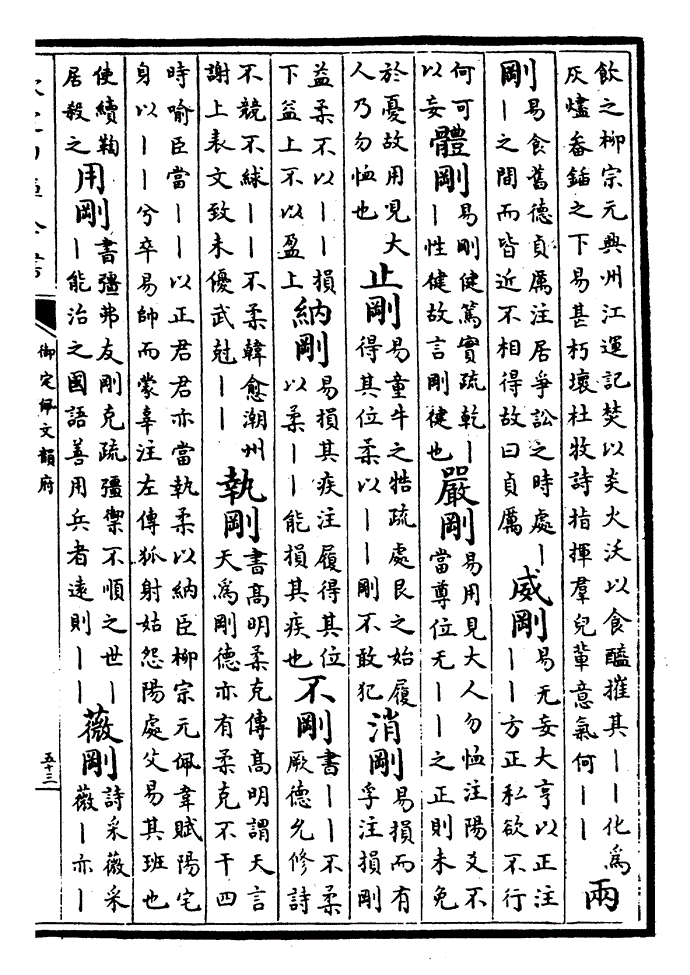 飲之柳宗元興州江運記焚以炎火沃以食醯摧其——化為
灰燼畚鍤之下易甚朽壞杜牧詩指揮羣兒輩意氣何——
兩剛
易食舊德貞厲注居爭訟之時處—
—之間而皆近不相得故曰貞厲
威剛
易无妄大亨以正注
——方正私欲不行
何可
以妄
體剛
易剛健篤實疏乾—
—性健故言剛健也
嚴剛
易用見大人勿恤注陽爻不
當尊位无——之正則未免
於憂故用見大
人乃勿恤也
止剛
易童牛之牿疏處艮之始履
得其位柔以——剛不敢犯
消剛
易損而有
孚注損剛
益柔不以——損
下益上不以盈上
納剛
易損其疾注履得其位
以柔——能損其疾也
不剛
書——不柔
厥德允修詩
不競不絿——不柔韓愈潮州
謝上表文致未優武尅——
執剛
書高明柔克傳高明謂天言
天為剛德亦有柔克不干四
時喻臣當——以正君君亦當執柔以納臣柳宗元佩韋賦陽宅
身以——兮卒易帥而蒙辜注左傳狐射姑怨陽處父易其班也
使續鞠
居殺之
用剛
書彊弗友剛克疏彊禦不順之世—
—能治之國語善用兵者遠則——
薇剛
詩采薇采
薇—亦—
御定佩文韻府
五十三